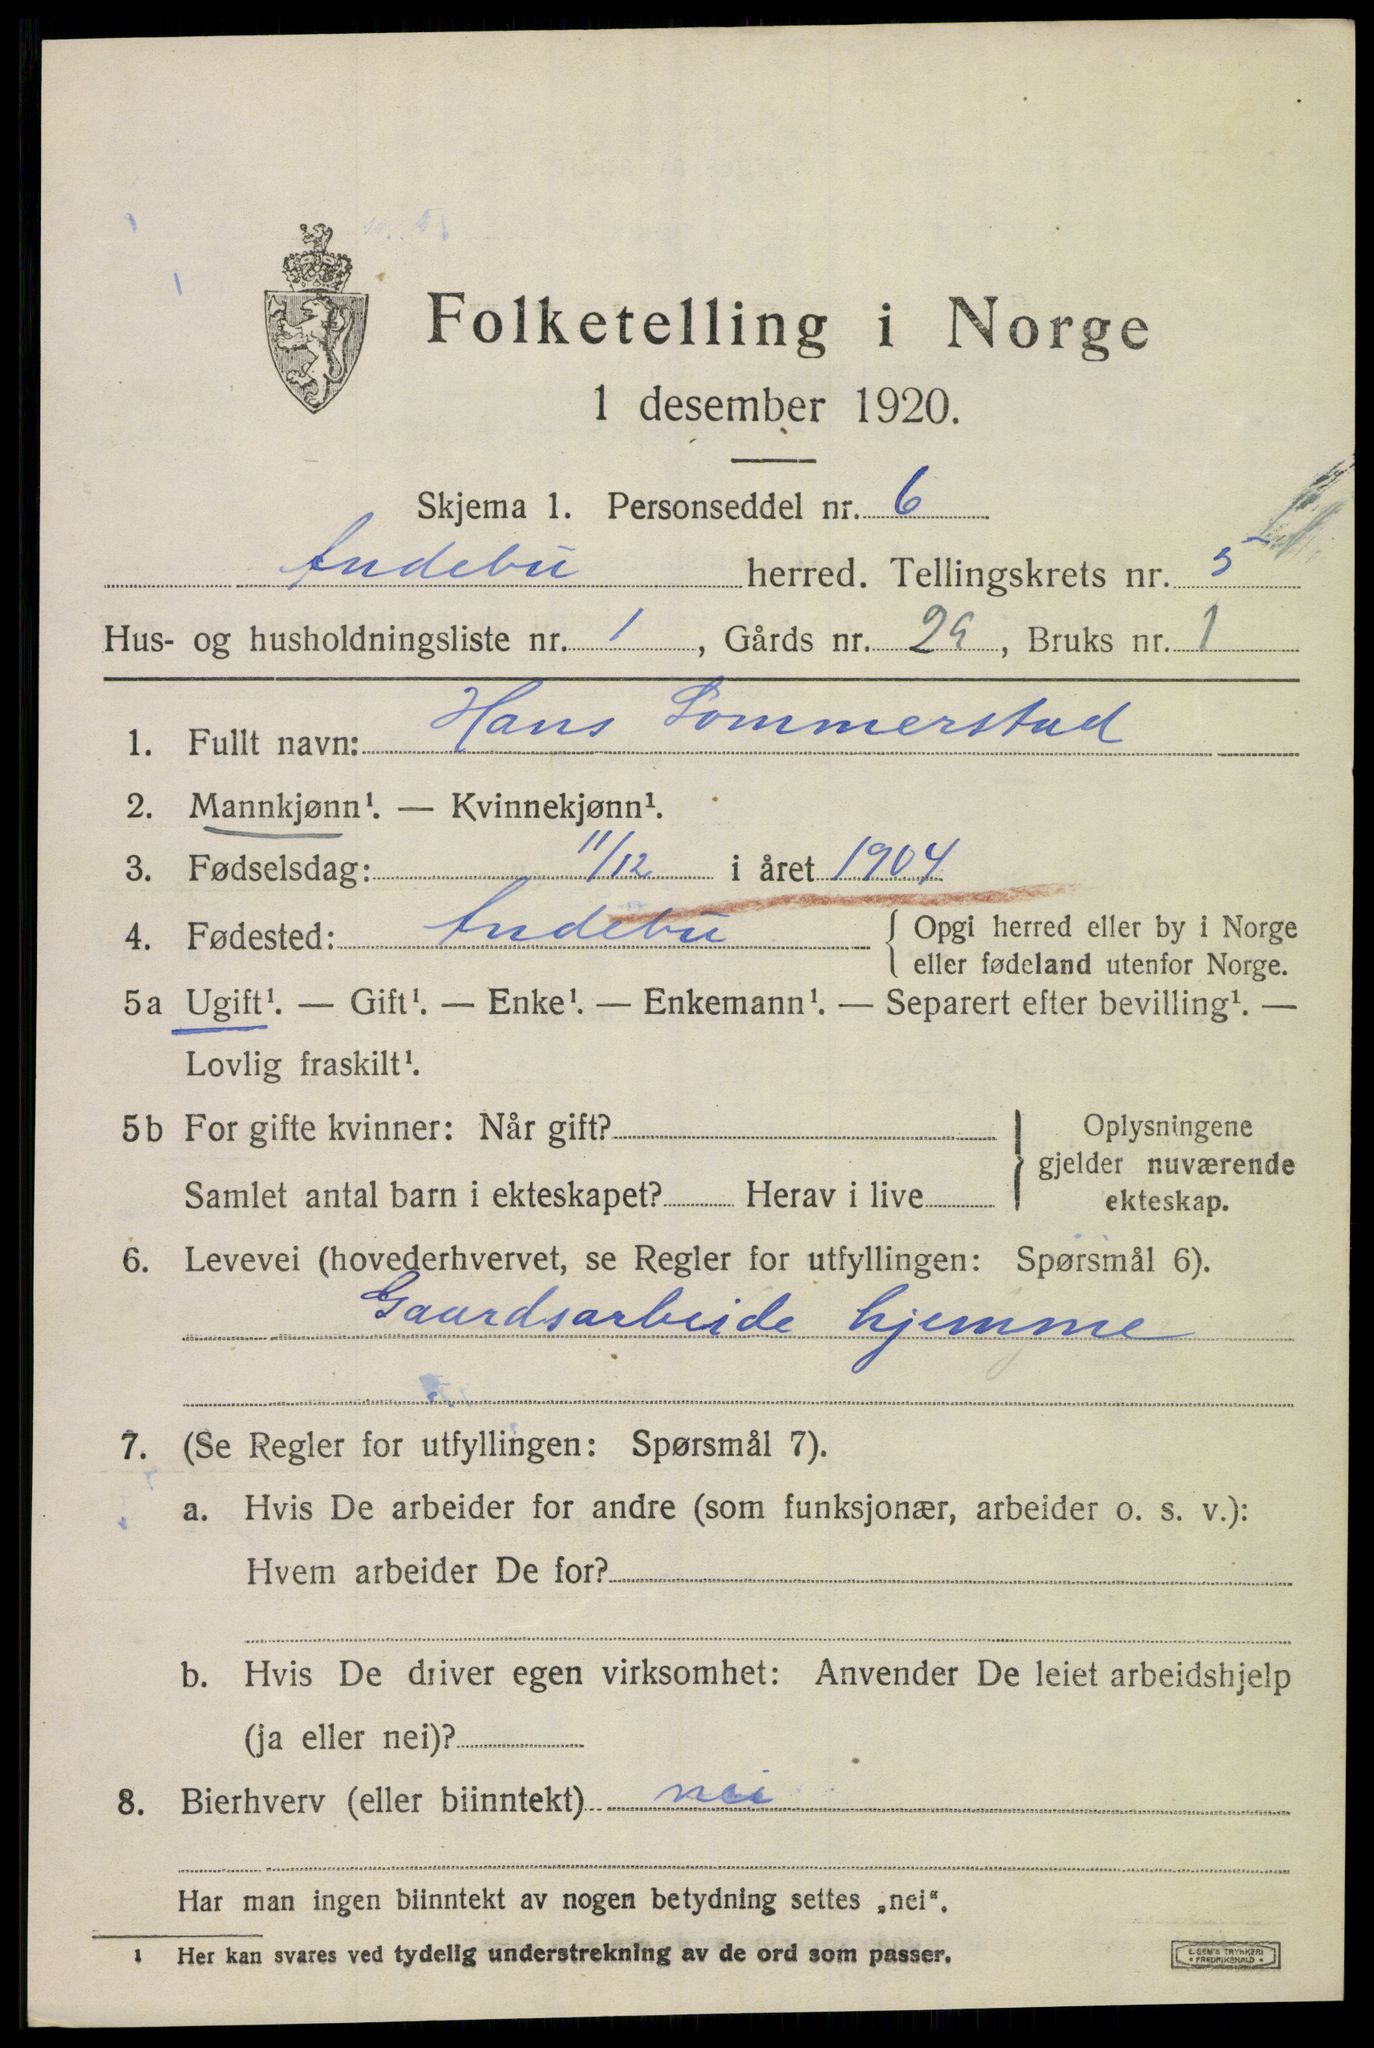 Folketelling i Norge
1 desember 1920.
Skjema 1. Personseddel nr. 6
Andebu herred. Tellingskrets nr. 5
Hus- og husholdningsliste nr. 1, Gårds nr. 29, Bruks nr. 1
1. Fullt navn: Hans Sommerstad
2. Mannkjønn¹. — Kvinnekjønn¹.
3. Fødselsdag: 11/12 i året 1904
4. Fødested: Andebu { Opgi herred eller by i Norge
eller fødeland utenfor Norge.
5a Ugift¹. — Gift¹. — Enke¹. — Enkemann¹. — Separert efter bevilling¹. —
Lovlig fraskilt¹.
5b For gifte kvinner: Når gift?
Samlet antal barn i ekteskapet? Herav i live
} Oplysningene
gjelder nuværende
ekteskap.
6. Levevei (hovederhvervet, se Regler for utfyllingen: Spørsmål 6).
Gaardsarbeide hjemme
7. (Se Regler for utfyllingen: Spørsmål 7).
a. Hvis De arbeider for andre (som funksjonær, arbeider o. s. v.):
Hvem arbeider De for?
b. Hvis De driver egen virksomhet: Anvender De leiet arbeidshjelp
(ja eller nei)?
8. Bierhverv (eller biinntekt) nei
Har man ingen biinntekt av nogen betydning settes „nei“.
1 Her kan svares ved tydelig understrekning av de ord som passer.
E. SEM'S TRYKKERI
• FREDRIKSHALD •